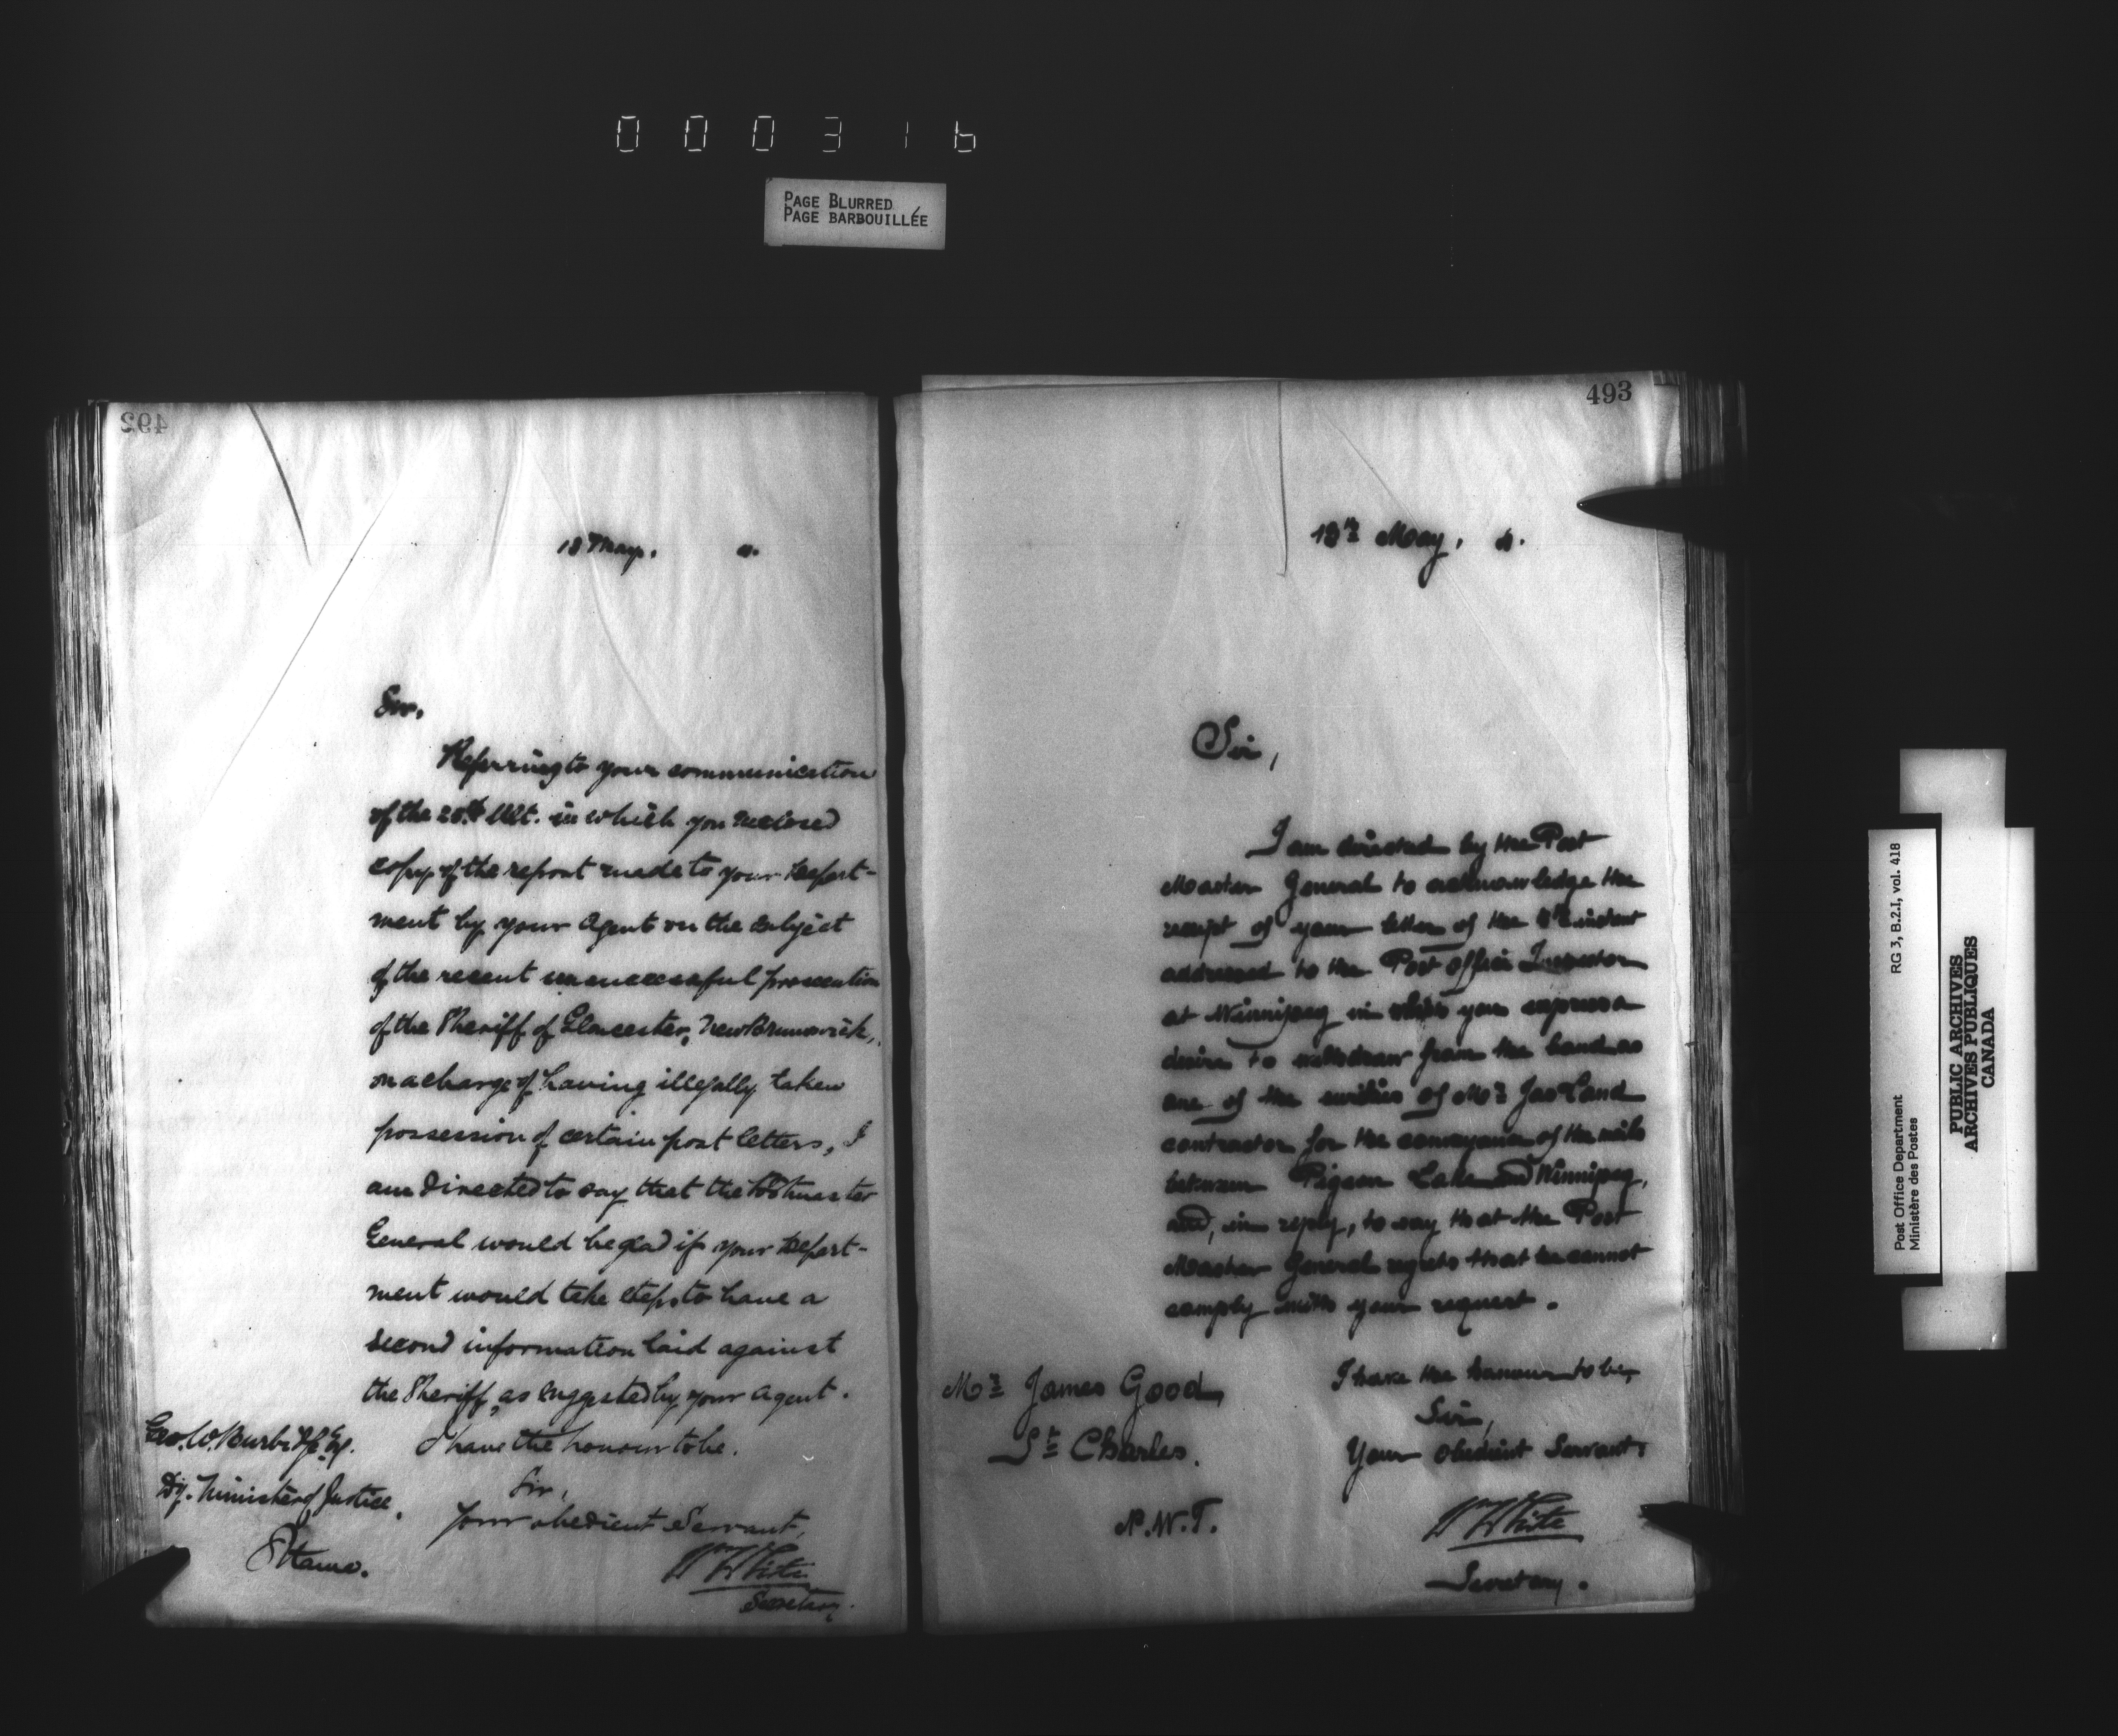 000316
PAGE BLURRED
PAGE BARBOUILLÉE
492
18 May,
Sir,
Referring to your communication
of the 20th Ult. in which you enclosed
copy of the report made to your Depart-
ment by your Agent on the subject
of the recent unsuccessful prosecution
of the Sheriff of Gloucester, New Brunswick,
on a charge of having illegally taken
possession of certain post letters, I
am directed to say that the Postmaster
General would be glad if your Depart-
ment would take steps to have a
second information laid against
the Sheriff, as suggested by your Agent.
I have the honour to be.
Sir,
Your obedient Servant,
Wm White
Secretary.
Geo. W. Burbidge Esq.
Dy. Minister of Justice,
Ottawa.
493
13th May,
Sir,
I am directed by the Post
Master General to acknowledge the
receipt of your letter of the instant
addressed to the Post Office Inspector
at Winnipeg in which you express a
desire to withdraw from the bond as
one of the sureties of Mr Jas
contractor for the conveyance of the mails
between Pigeon Lake and Winnipeg,
and, in reply, to say that the Post
Master General regrets that he cannot
comply with your request.
I have the honour to be,
Sir,
Your obedient Servant,
Wm White
Secretary.
Mr James Good,
St Charles.
N.W.T.
Post Office Department RG 3, B.2.I, vol. 418
Ministère des Postes
PUBLIC ARCHIVES
ARCHIVES PUBLIQUES
CANADA